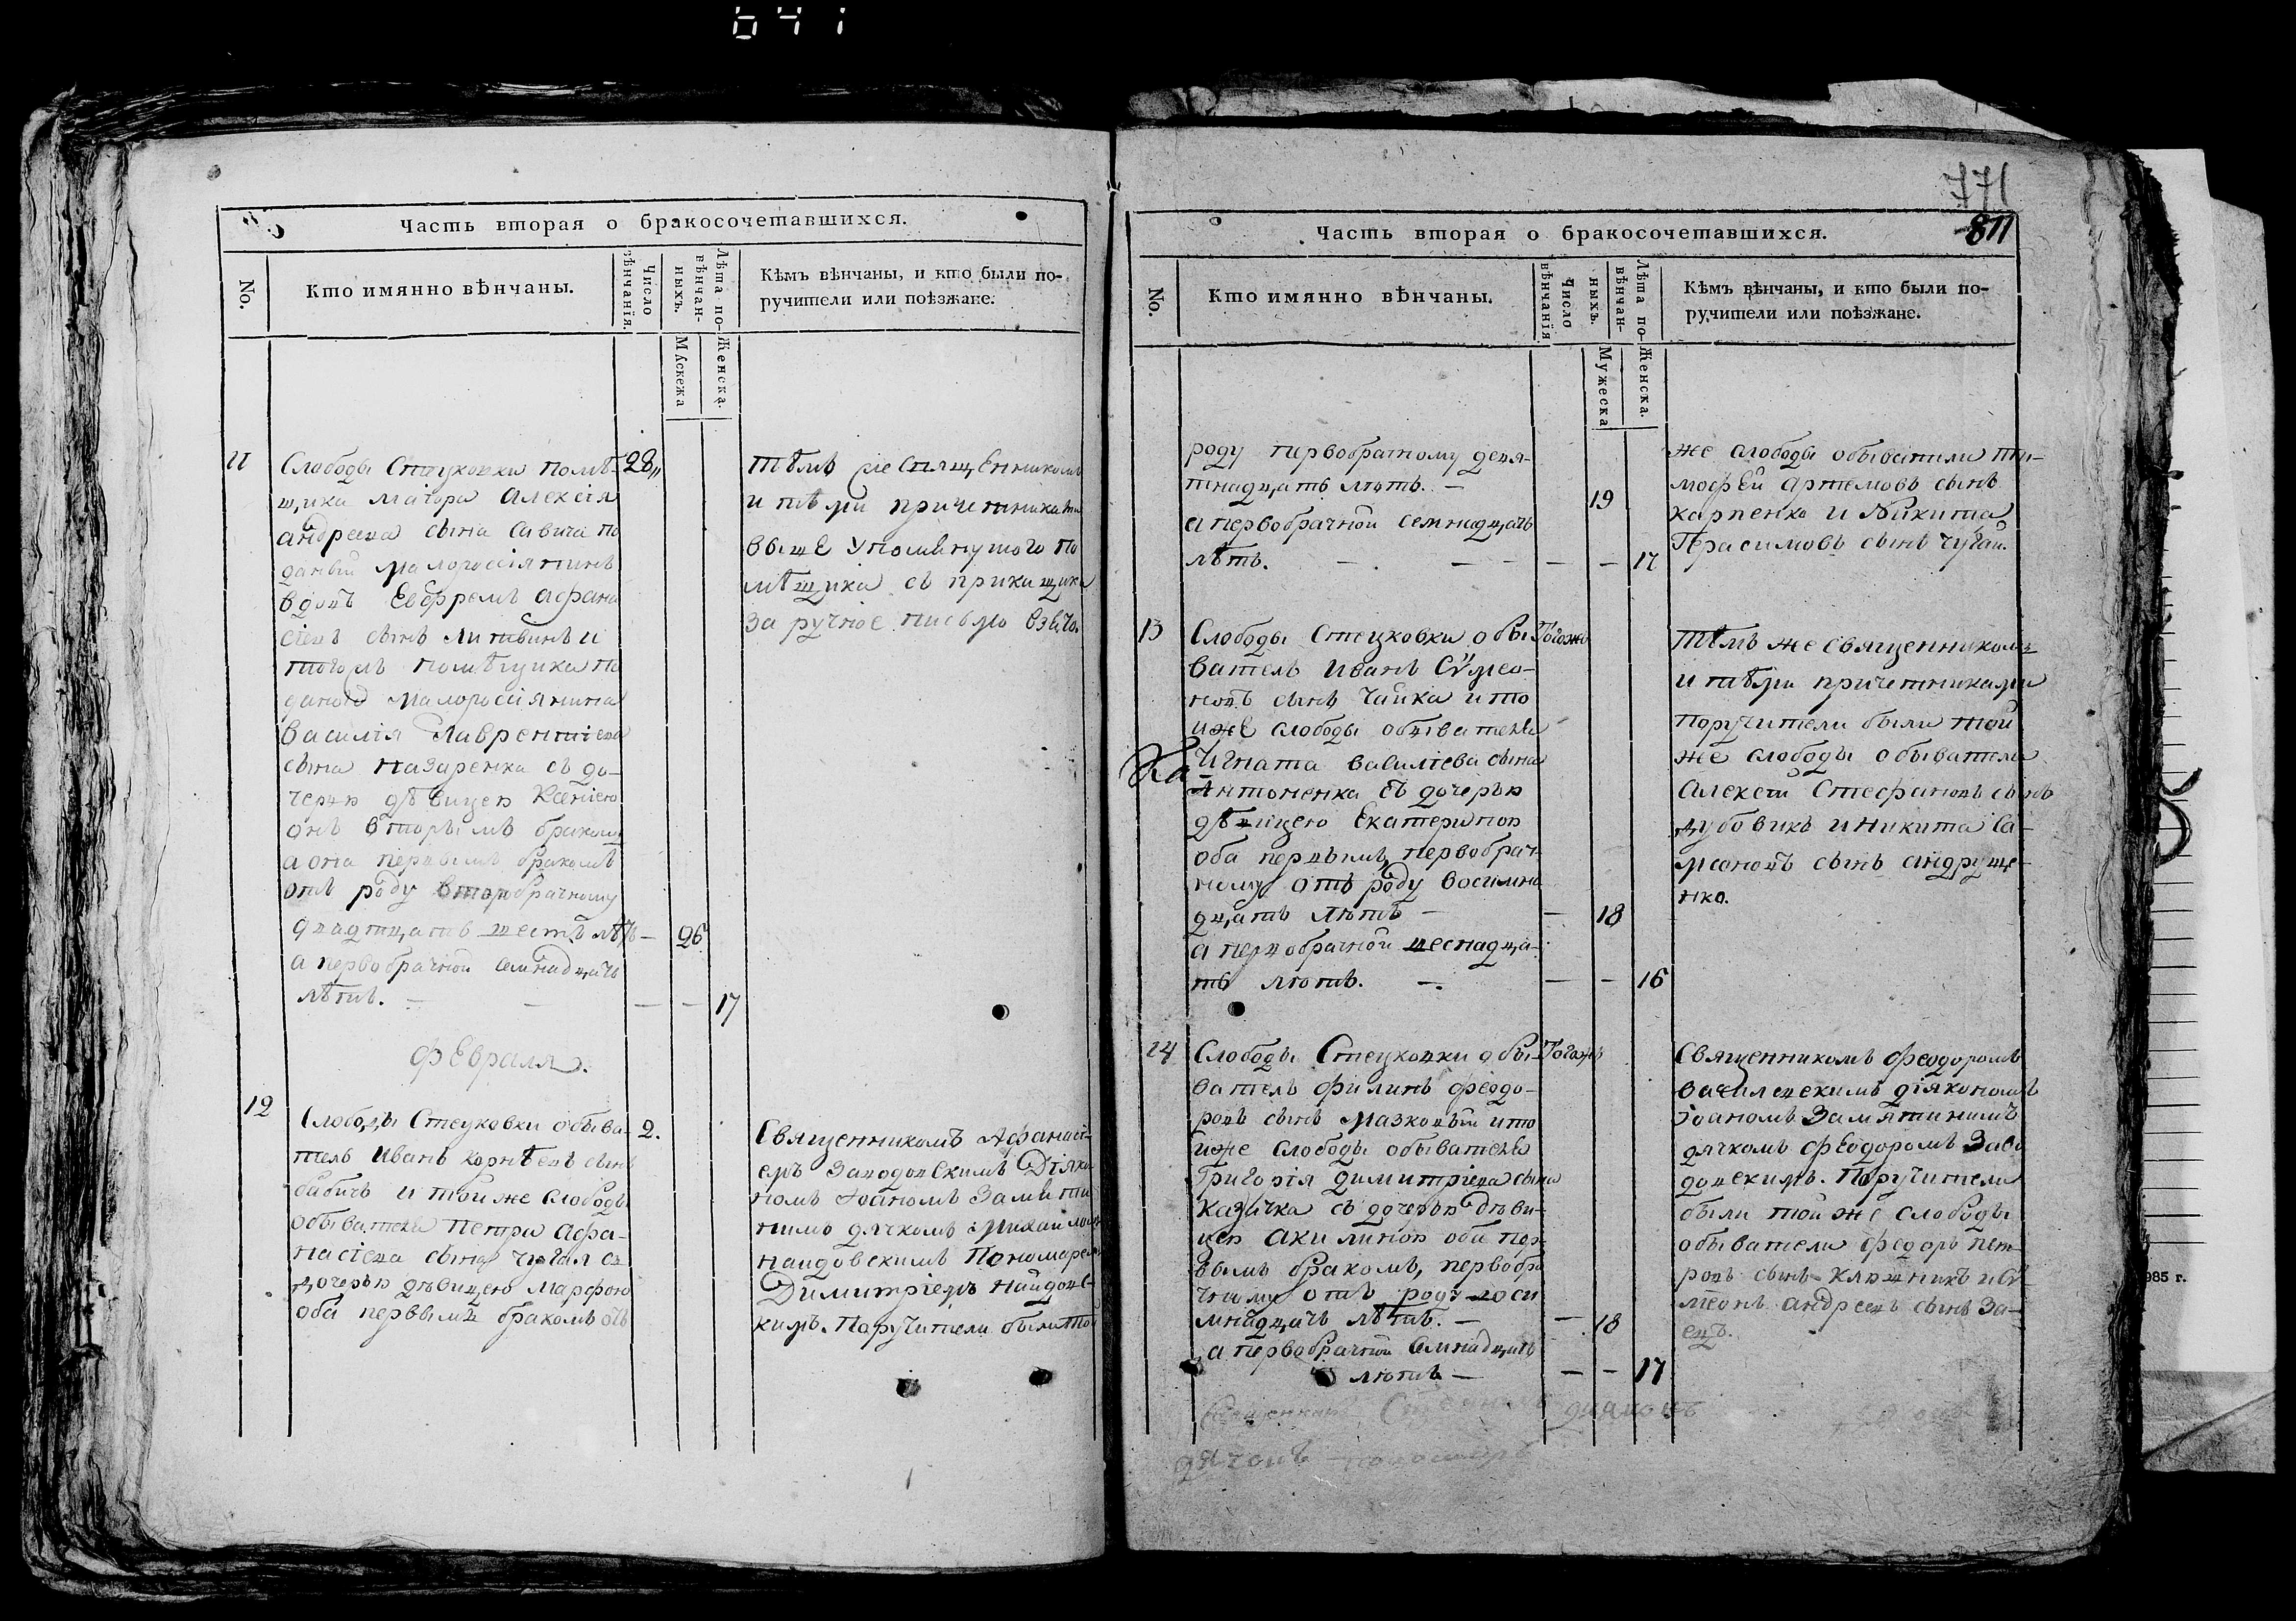 641
Часть вторая о бракосочетавшихся.
No.
Кто имянно вѣнчаны.
Число вѣнчанія.
Лѣта по-вѣнчан-ныхъ.
Мужеска
Женска.
Кѣмъ вѣнчаны, и кто были по-
ручители или поѣзжане.
11
Слободы Стецковки помѣ-
щика маіора Алексія
андреева сына савича по
даный малороссіянинъ
вдовъ Евфремъ афана
сіевъ сынъ литвинъ и
тогожъ помѣщика по
даного малороссіянина
василія Лаврентіева
сына назаренка съ до-
черью дѣвицею Ксеніею
онъ вторымъ бракомъ
а она первымъ бракомъ
отъ роду второбрачному
двадцать шесть лѣтъ —
а первобрачной семнадцать
лѣтъ. — — — —
28
26
17
тѣмъ же Священникомъ
и тѣми причетниками
выше упомянутого по
мѣщика съ прикащика
за ручное письмо взято.
февраля.
12
Слободы Стецковки обыва-
тель Иванъ корнѣевъ сынъ
бабичъ и той же слободы
обывателя петра афа-
насіева сына чугая съ
дочерью дѣвицею марфою
оба первымъ бракомъ отъ
2.
Священникомъ Афанасі-
емъ Заводовскимъ Діяко
номъ Іоаномъ Замяти
нимъ дячкомъ Михаиломъ
наидовскимъ Пономаремъ
Димитріемъ найдовс-
кимъ. Поручители были той
771
811
Часть вторая о бракосочетавшихся.
No.
Кто имянно вѣнчаны.
Число вѣнчанія
Лѣта по-вѣнчан-ныхъ.
Мужеска
Женска.
Кѣмъ вѣнчаны, и кто были по-
ручители или поѣзжане.
роду первобрачному девя-
тнадцать лѣтъ. —
а первобрачной семнадцать
лѣтъ. — — — — —
19
17
же слободы обыватили ти-
мофей артемовъ сынъ
карпенко и Никита
Герасимовъ сынъ чугай.
13
Слободы Стецковки обы
ватель иванъ Сѵмео-
новъ сынъ чайка и то
иже слободы обывателя
Игната василіева сына
Антоненка съ дочерью
дѣвицею Екатериною
оба первымъ, первобрач-
ному отъ роду восимна
дцать лѣтъ — —
а первобрачной шеснадца-
ть лѣтъ. — — —
Тогожъ
18
16
Тѣмъ же священникомъ
и тѣми причетниками
поручители были той
же слободы обыватели
Алексѣй Стефановъ сынъ
дубовикъ и никита са-
мсоновъ сынъ андруще-
нко.
14
Слободы Стецковки обы-
ватель филипъ феодо-
ровъ сынъ мазковый и то
иже слободы обывателя
григорія димитріева сына
казачка съ дочерью Дѣви-
цею акилиною оба пер-
вымъ бракомъ, первобра
чному отъ роду воси
мнадцать лѣтъ. — —
а первобрачной семнадцать
лѣтъ — — —
Тогожъ
18
17
Священникомъ феодоромъ
василевскимъ діякономъ
Іоаномъ Замятинимъ
дячкомъ феодоромъ Заво
довскимъ. Поручители
были той же слободы
обыватели федоръ пет-
ровъ сынъ ключникъ и Сѵ
меонъ андреевъ сынъ За-
ецъ.
985 г.